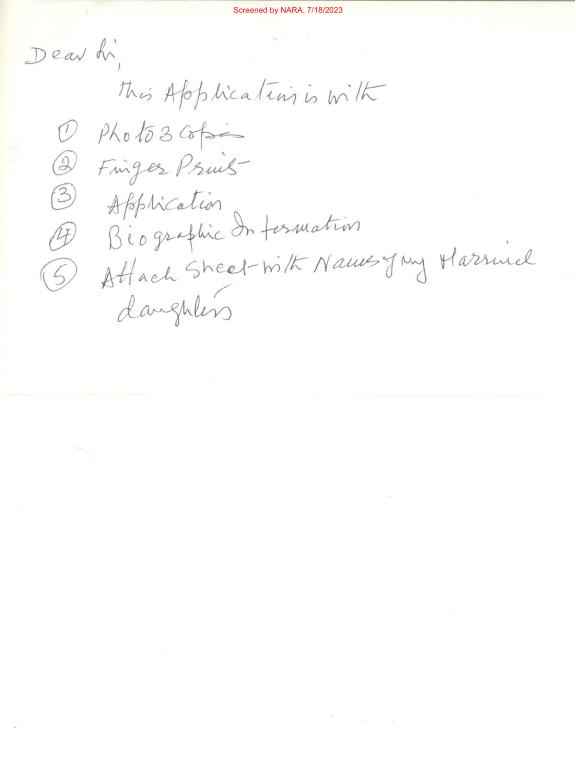 Screened by NARA, 7/18/2023
Dear Sir,
This Application is with
① Photo 3 Copies
② Finger Prints
③ Application
④ Biographic Information
⑤ Attach Sheet with Names of my Married
daughters